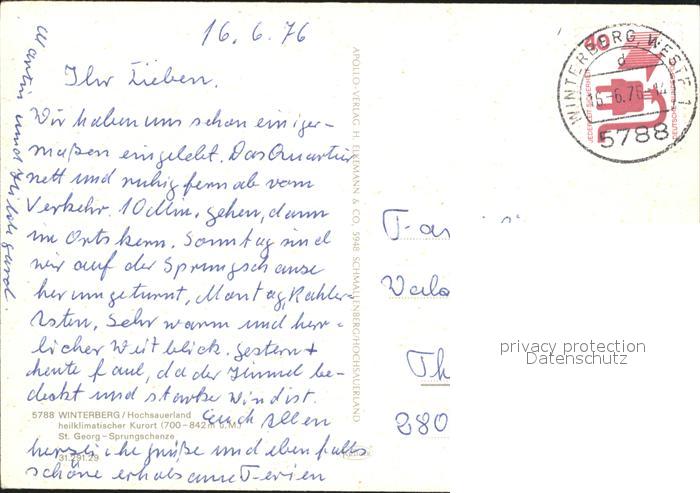 16.6.76
Ihr Lieben.
Wir haben uns schon einiger-
maßen eingelebt. Das Quartier
nett und ruhig fern ab vom
Verkehr. 10 Min. gehen, dann
im Ortskern. Sonntag sind
wir auf der Sprungschanse
herumgeturnt, Montag, Kahler-
Asten. Sehr warm und herr-
licher Weitblick. Gestern +
heute faul, da der Himmel be-
deckt und starker Wind ist.
Euch Allen
herzliche grüße und ebenfalls
schöne erholsame Ferien
Martin und Hildegard.
5788 WINTERBERG / Hochsauerland
heilklimatischer Kurort (700-842 m ü. M.)
St. Georg-Sprungschanze
31.291.29
APOLLO-VERLAG H. ELKEMANN & CO. 5948 SCHMALLENBERG/HOCHSAUERLAND
WINTERBERG, WESTF 1
d
16.-6.76-14
5788
40
JEDERZEIT SICHERHEIT
DEUTSCHE BUNDESPOST
Th
280
privacy protection
Datenschutz